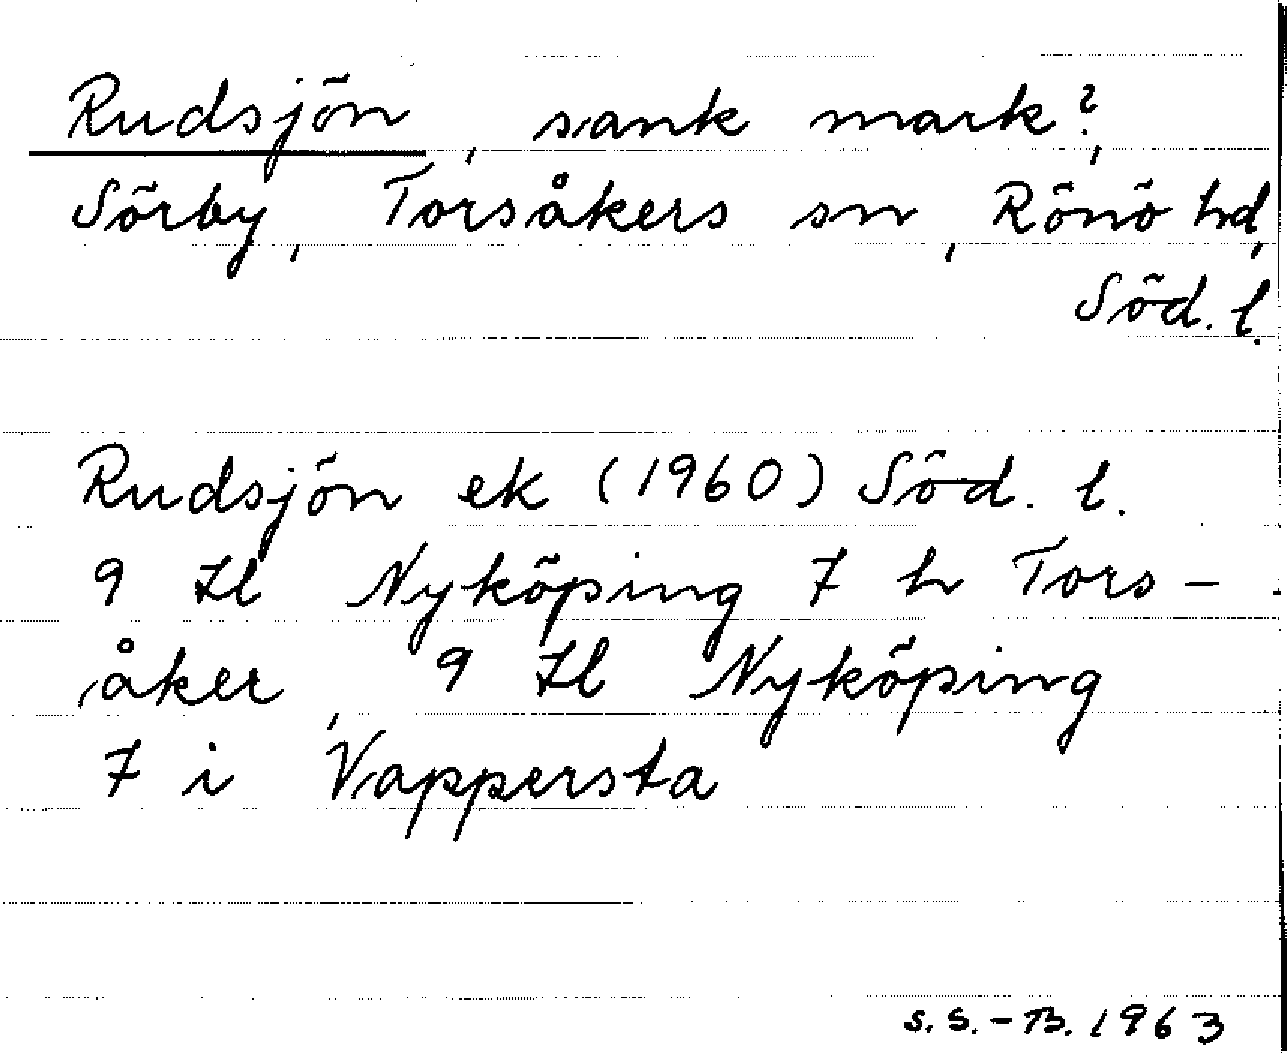 Rudsjön, sank mark?,
Sörby, Torsåkers sn, Rönö hd,
Söd. l.
Rudsjön ek (1960) Söd. l.
9 H Nyköping 7 h Tors-
åker, 9 H Nyköping
7 i Vappersta
S. S. - B. 1963